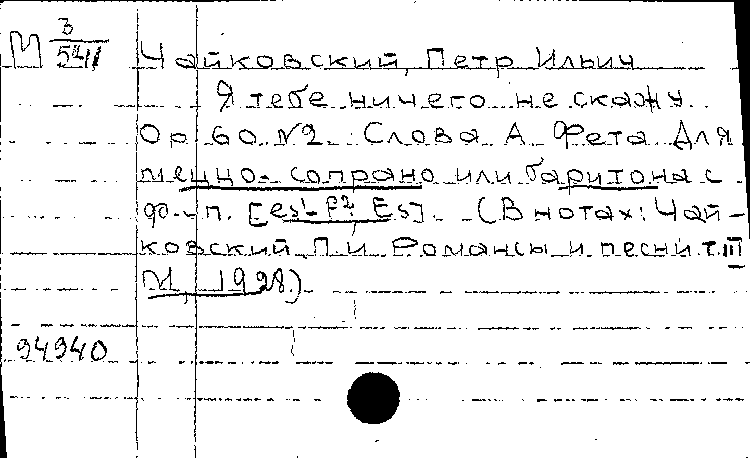 М 3/5411
Чайковский, Петр Ильич
Я тебе ничего не скажу.
Ор. 60 №2. Слова А. Фета. Для
меццо-сопрано или баритона с
ф.-п. [es¹-f², Es]. (В нотах: Чай-
ковский П.И. Романсы и песни т. III
М., 1928.)
94940